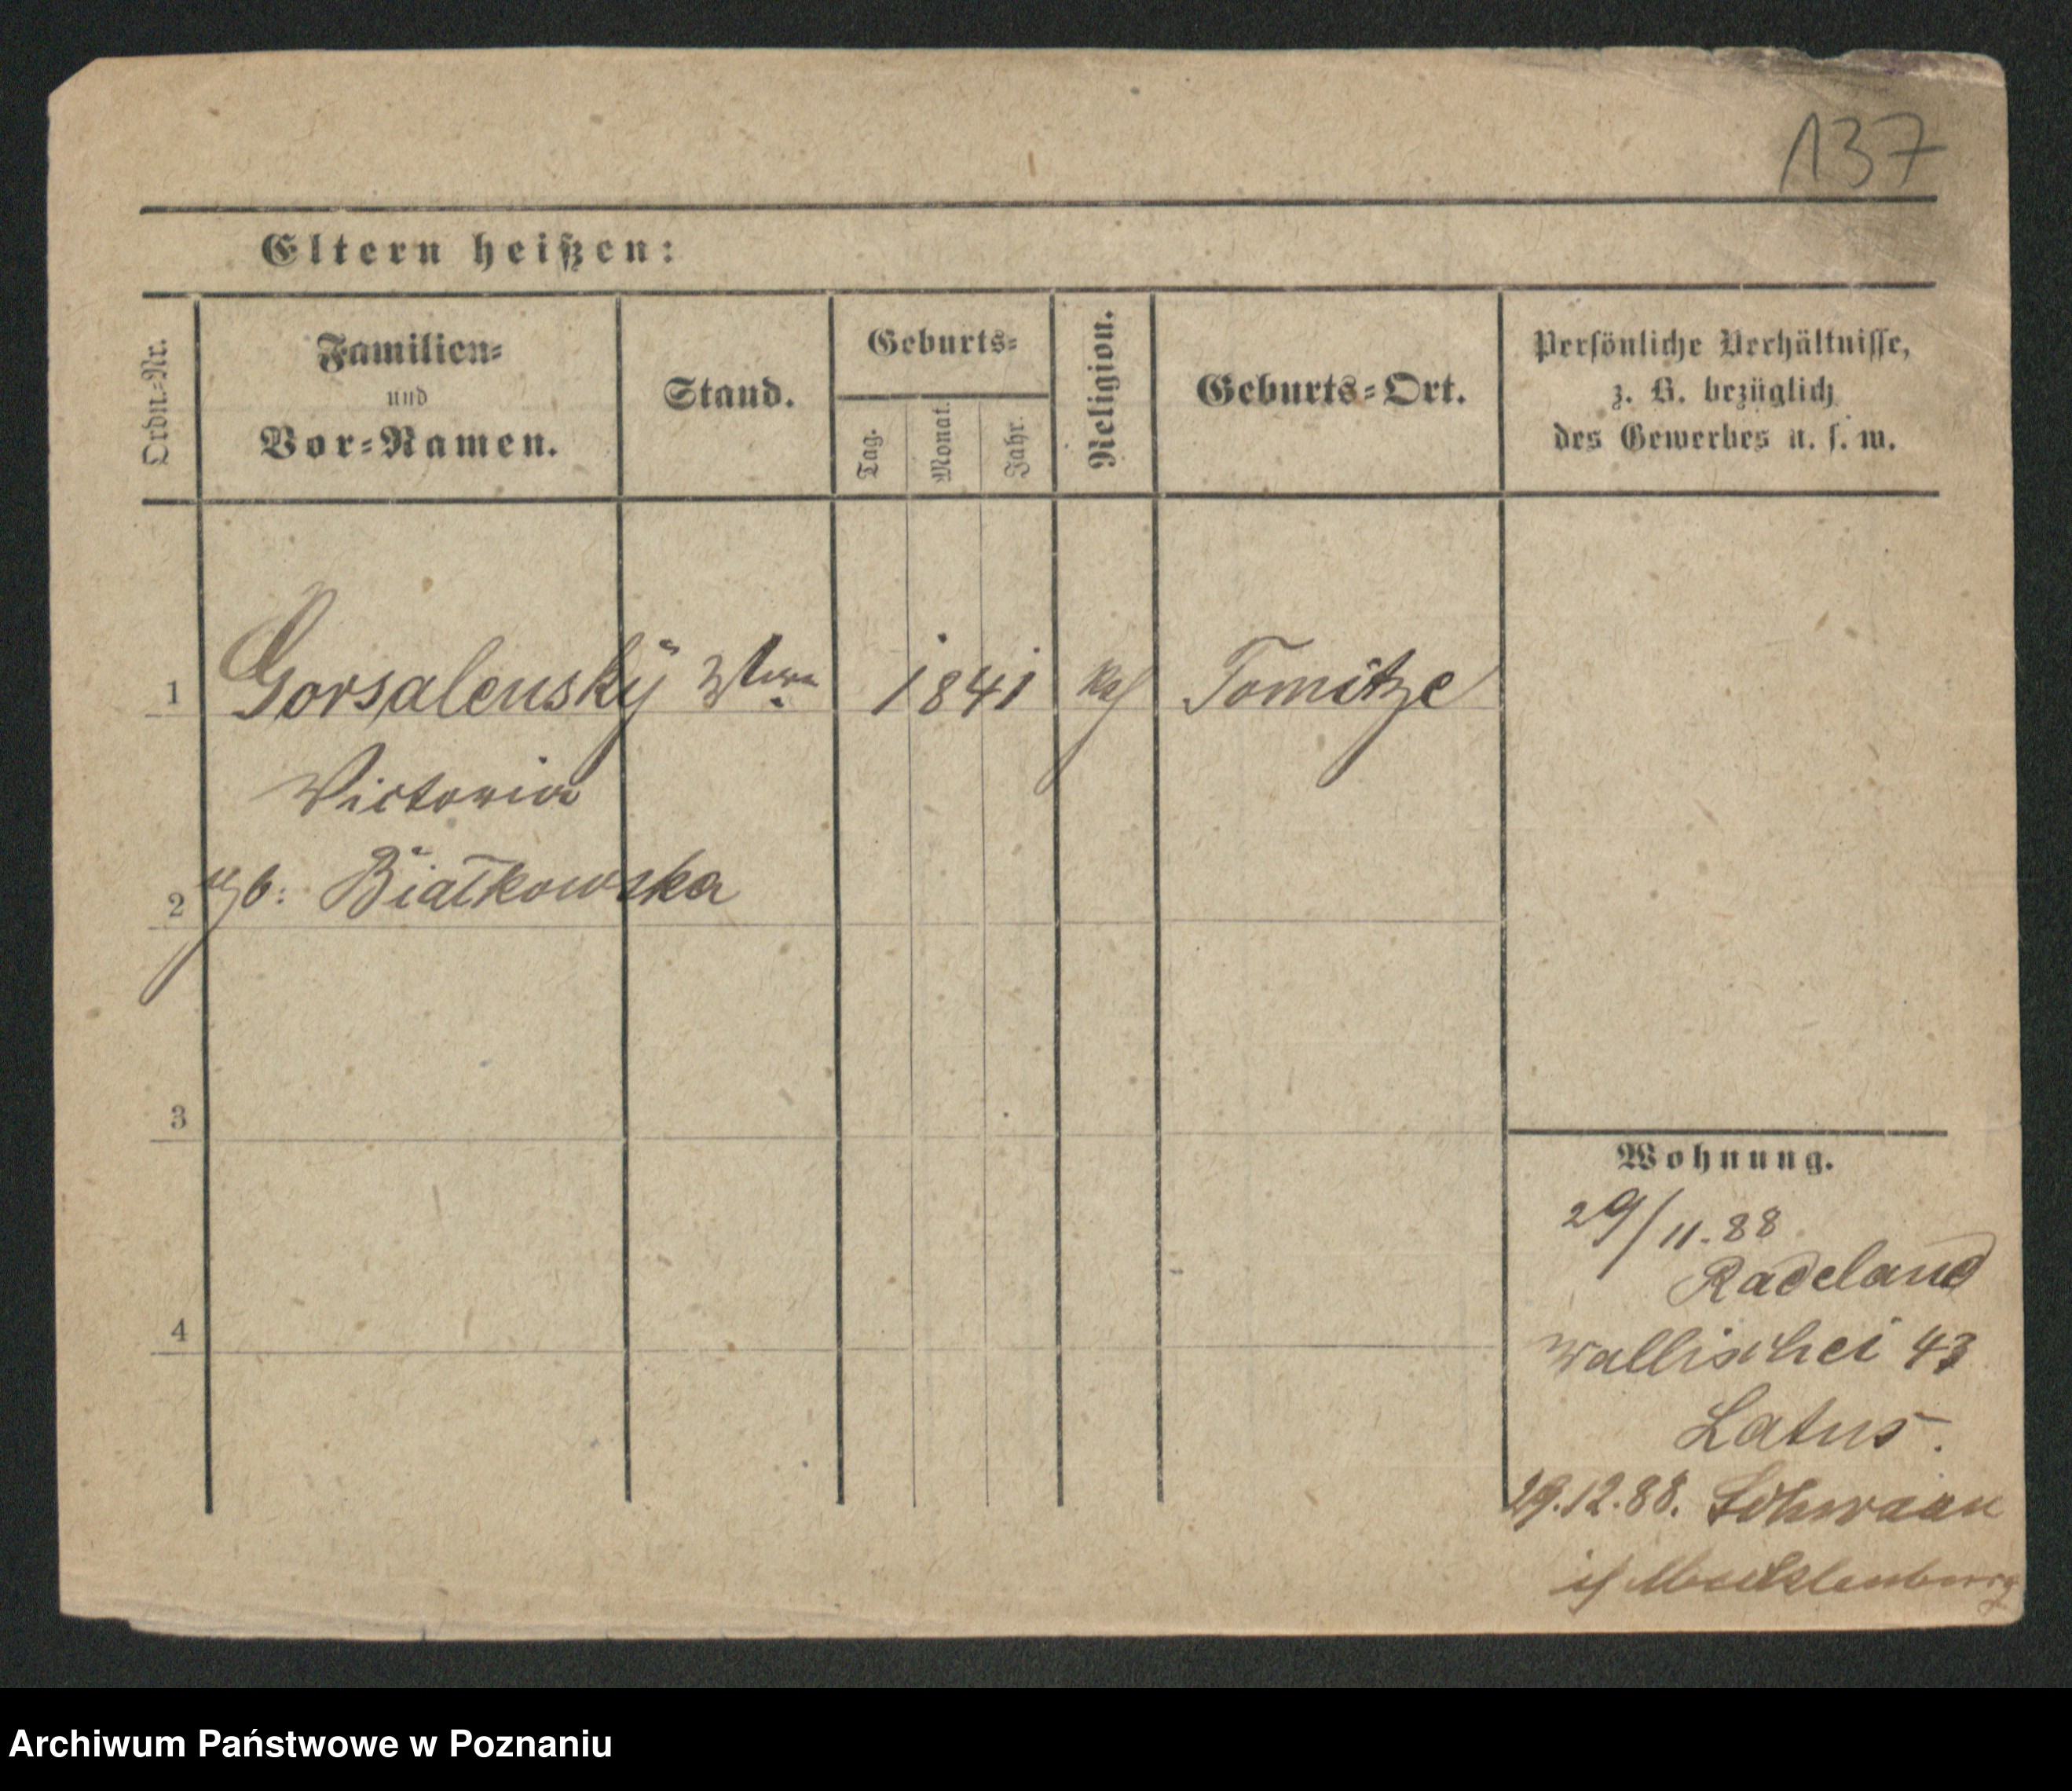 137
Eltern heißen:
Ordn.-Nr.
Familien-
und
Vor-Namen.
Stand.
Geburts-
Tag.
Monat.
Jahr.
Religion.
Geburts-Ort.
Persönliche Verhältnisse,
z. B. bezüglich
des Gewerbes u. s. w.
1 Gorsalensky Wwe 1841 kat Tomitze
Victoria
2 geb: Białkowska
3
4
Wohnung.
29/11.88
Radeland
Wallischei 43
Latus.
29.12.88. Schwaan
i/ Mecklenburg
Archiwum Państwowe w Poznaniu